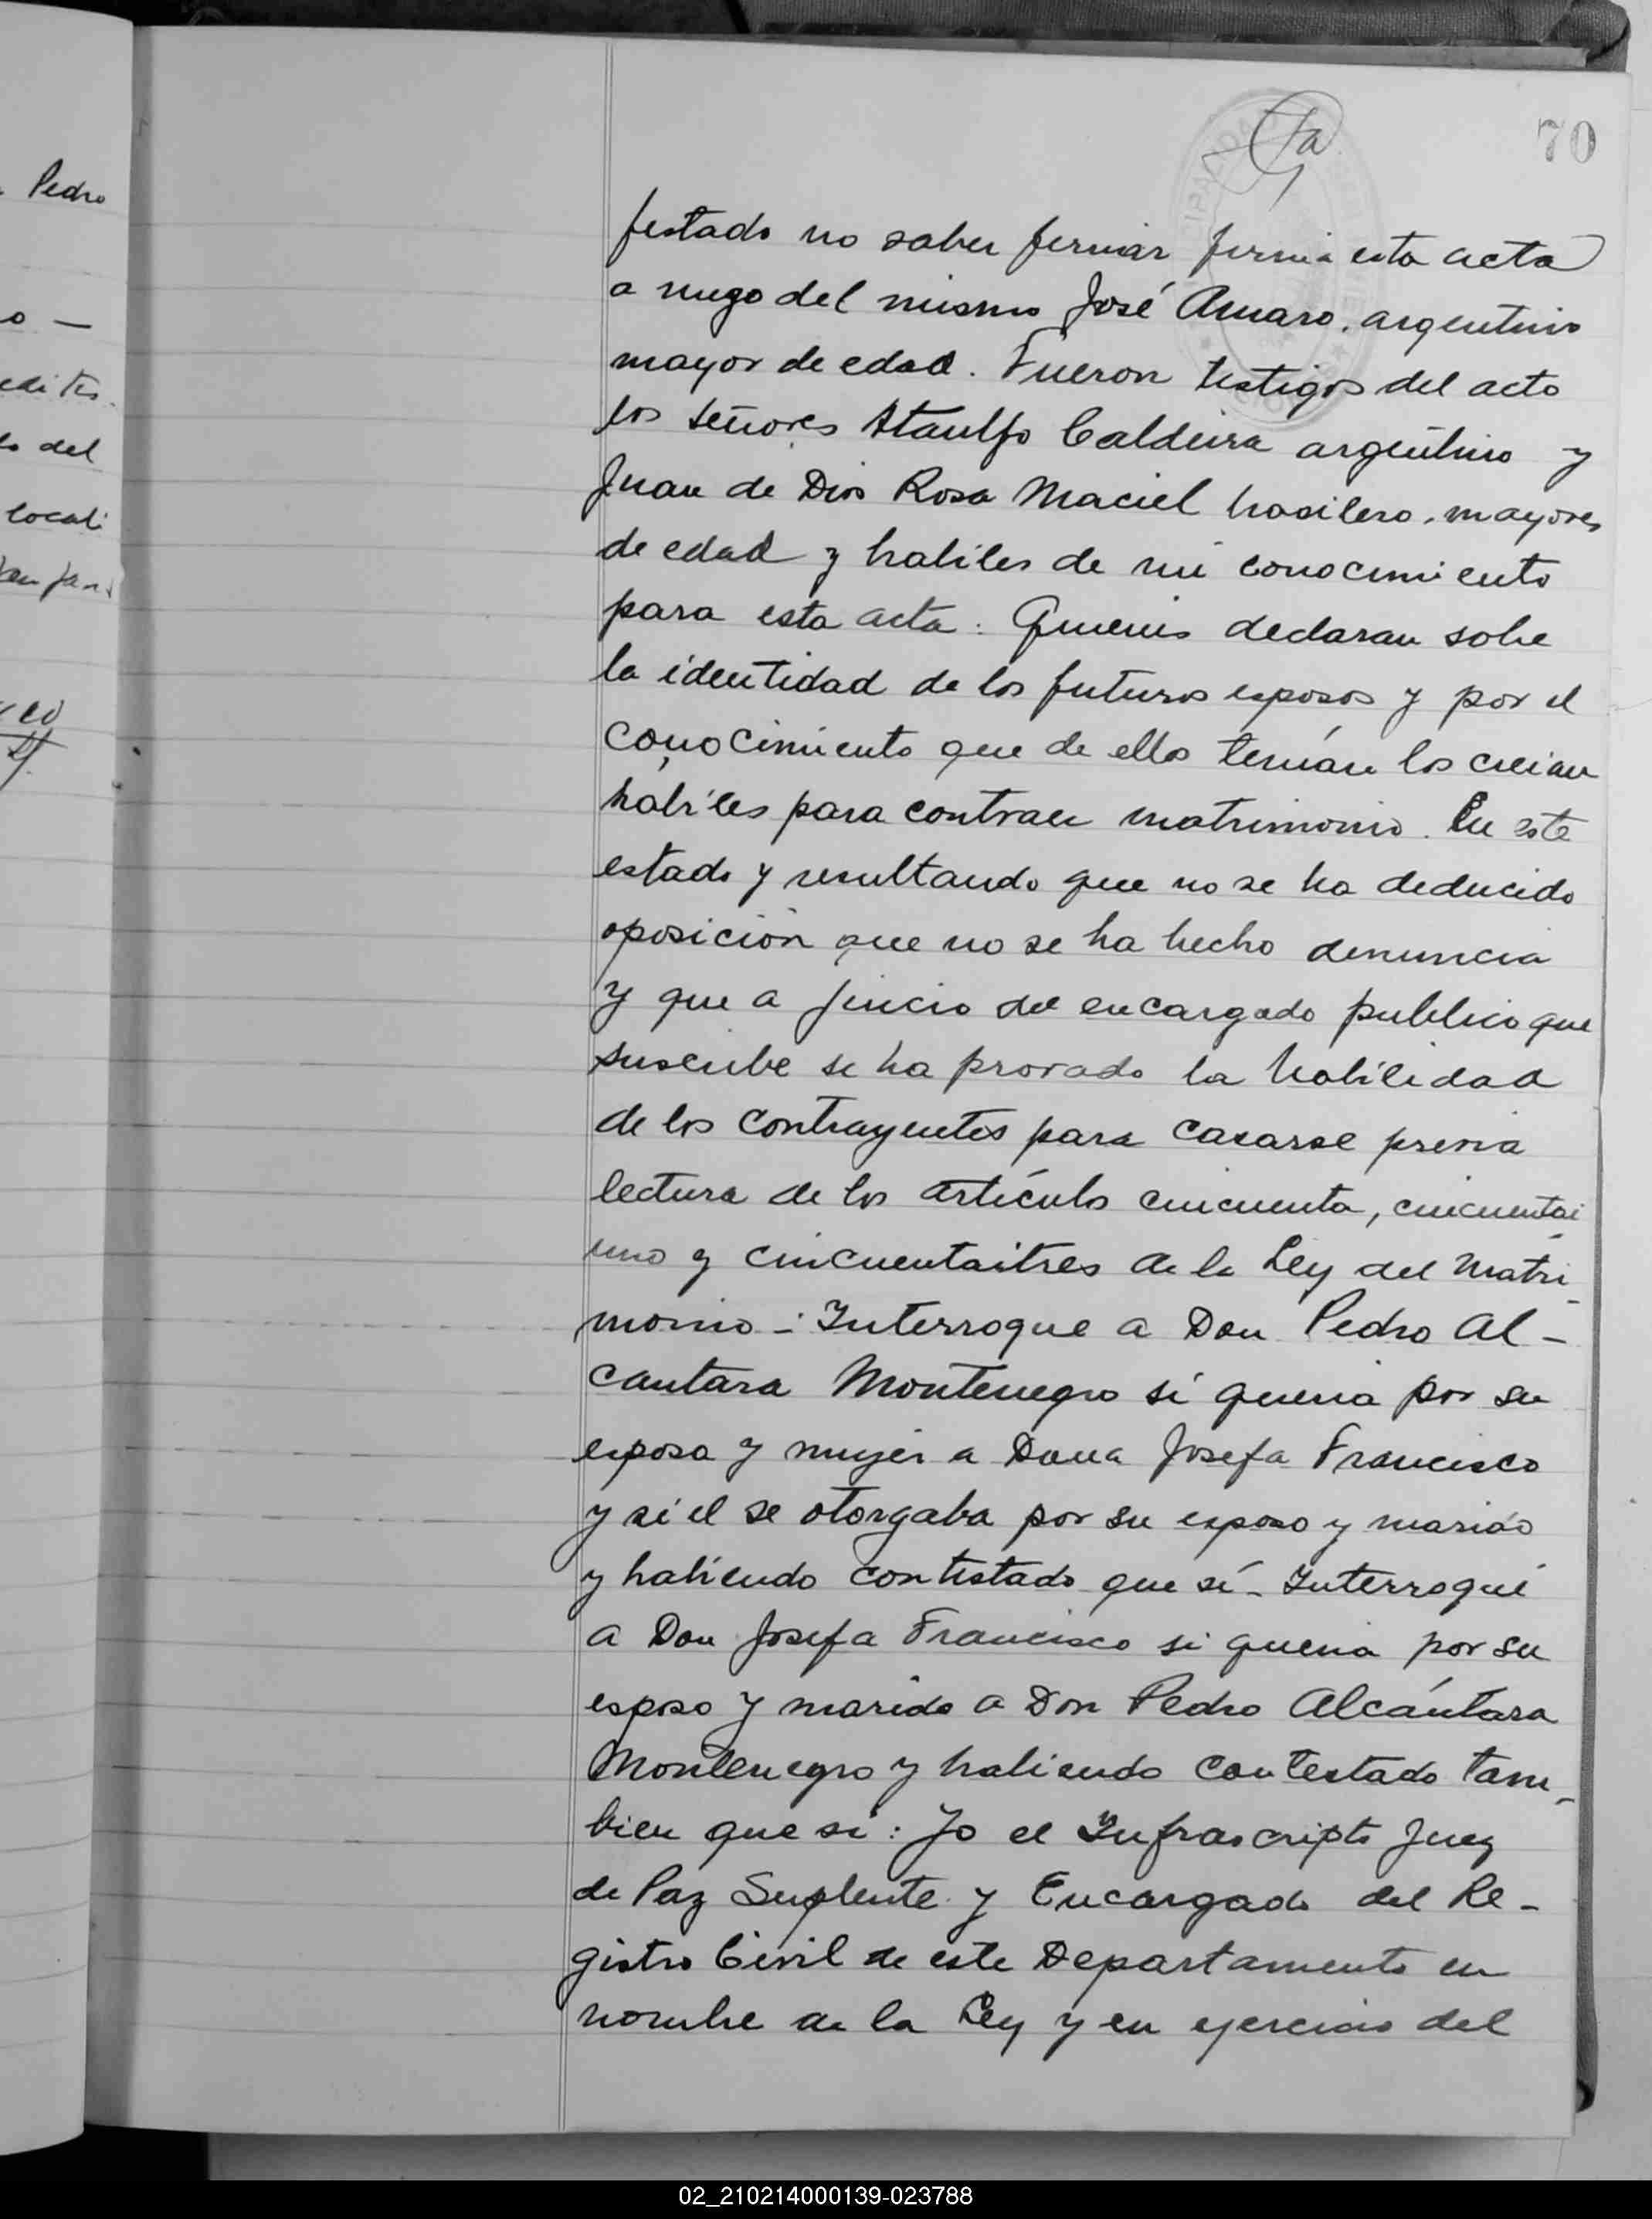 70
Pedro
del
locali
festado no saber firmar firma esta acta
a ruego del mismo José Amaro, argentino
mayor de edad. Fueron testigos del acto
los señores Ataulfo Caldeira argentino y
Juan de Dios Rosa Maciel brasilero, mayores
de edad y habiles de mi conocimiento
para esta acta: Quienes declaran sobre
la identidad de los futuros esposos y por el
conocimiento que de ellos tenían los creian
hábiles para contraer matrimonio. En este
estado y resultando que no se ha deducido
oposición que no se ha hecho denuncia
y que a juicio del encargado publico que
suscribe se ha provado la habilidad
de los contrayentes para casarse previa
lectura de los artículos cincuenta, cincuentai
uno y cincuentaitres de la Ley del Matri-
monio -: Interroque a Don Pedro Al-
cantara Montenegro si queria por su
esposa y mujer a Dona Josefa Francisco
y si el se otorgaba por su esposo y marido
y habiendo contestado que sí - Interroqué
a Don Josefa Francisco si queria por su
esposo y marido a Don Pedro Alcántara
Montenegro y habiendo contestado tam-
bien que si: Yo el Infrascripto Juez
de Paz Suplente y Encargado del Re-
gistro Civil de este Departamento en
nombre de la Ley y en ejercicio del
02_210214000139-023788